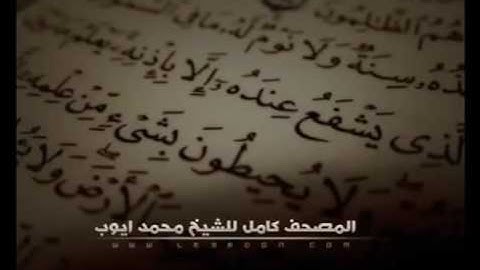 هُمُ الظَّالِمُونَ
سِنَةٌ وَلَا نَوْمٌ لَّهُ مَا فِي
الَّذِي يَشْفَعُ عِندَهُ إِلَّا بِإِذْنِهِ يَعْلَمُ
لَا يُحِيطُونَ بِشَيْءٍ مِّنْ عِلْمِهِ
الْأَرْضَ وَلَا
المصحف كامل للشيخ محمد ايوب